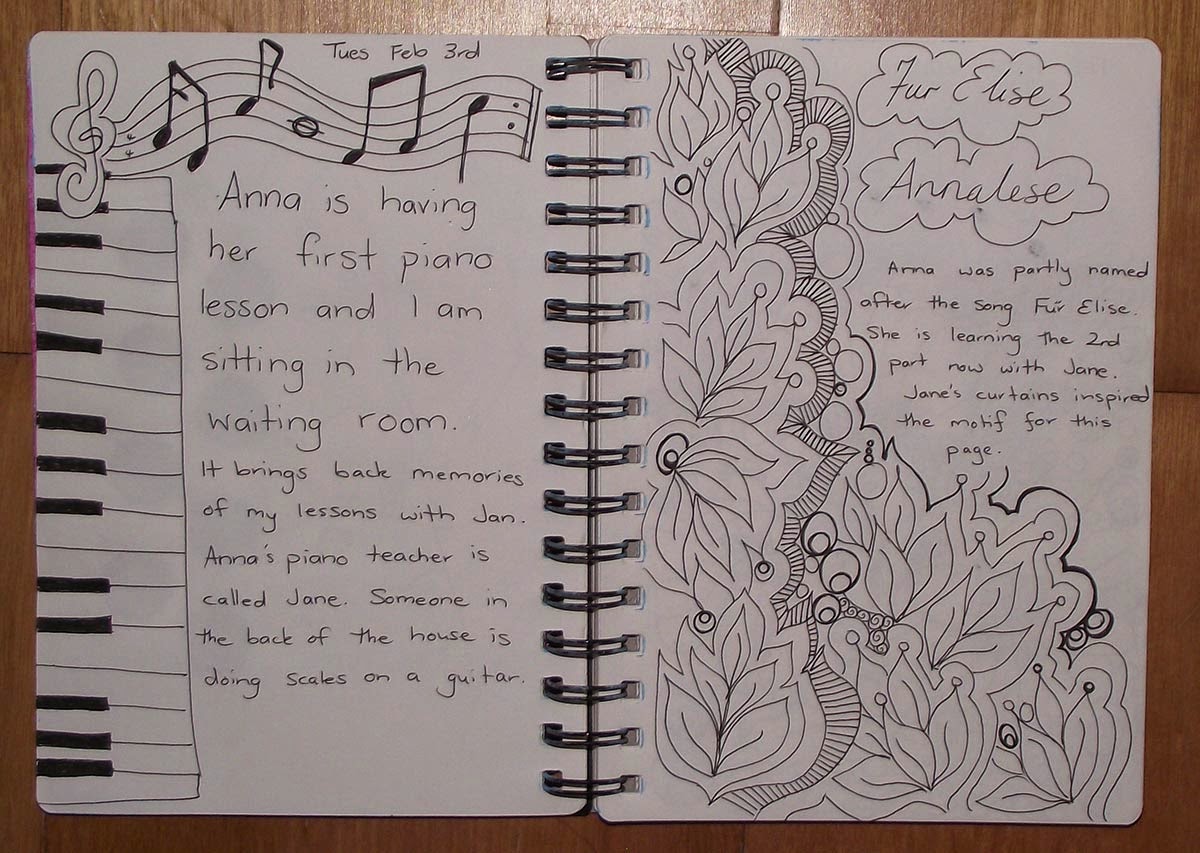 Tues Feb 3rd
Anna is having
her first piano
lesson and I am
sitting in the
waiting room.
It brings back memories
of my lessons with Jan.
Anna's piano teacher is
called Jane. Someone in
the back of the house is
doing scales on a guitar.
Fur Elise
Annalese
Anna was partly named
after the song Für Elise.
She is learning the 2nd
part now with Jane.
Jane's curtains inspired
the motif for this
page.